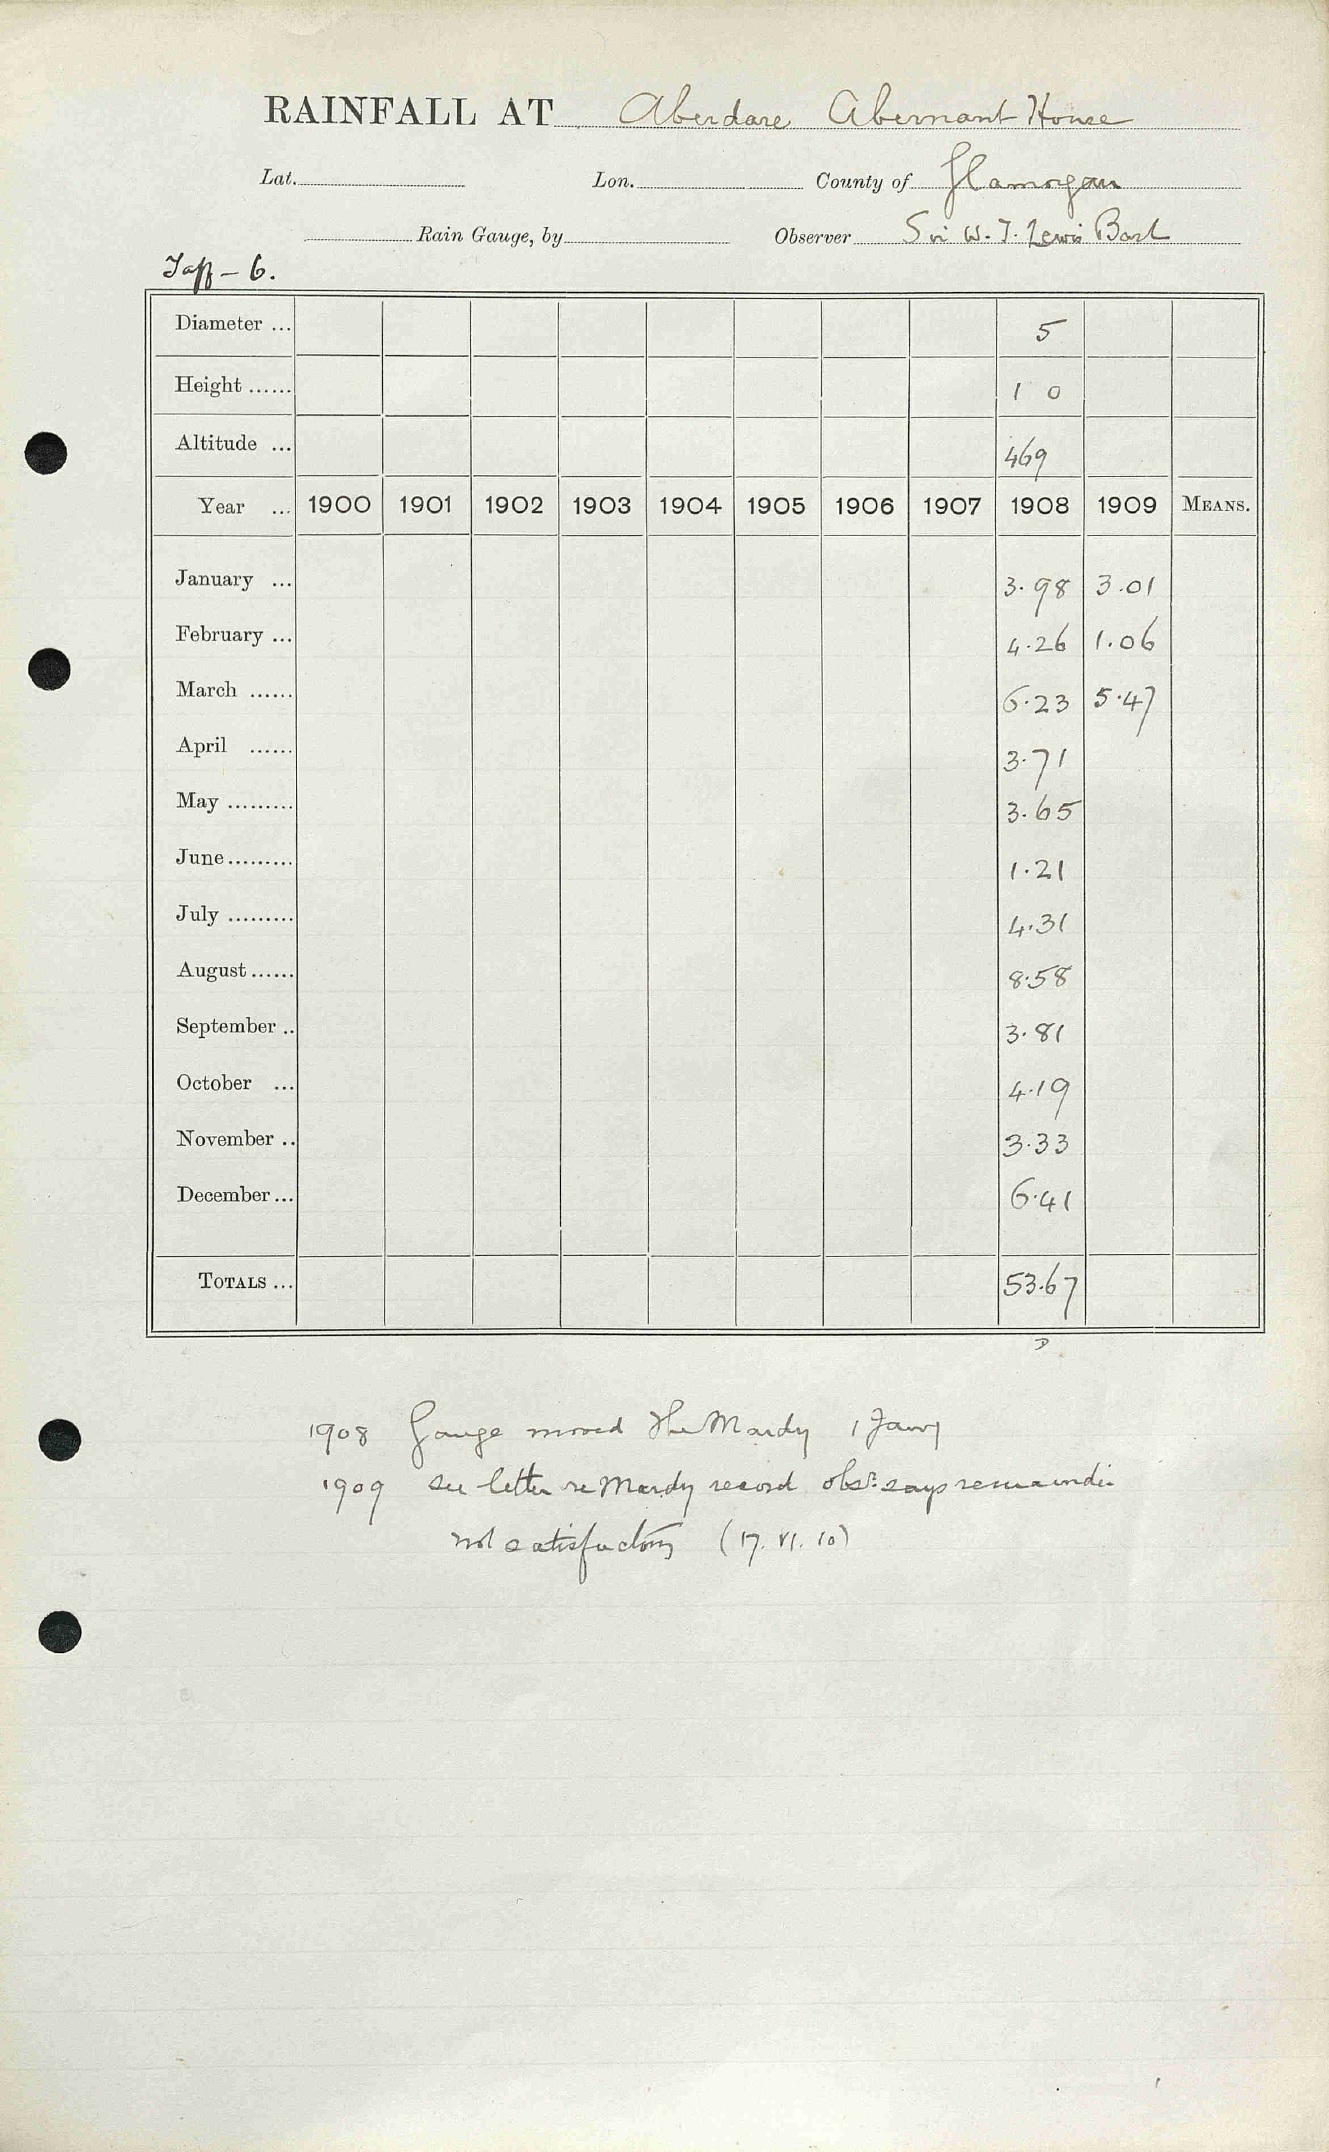 RAINFALL AT Aberdare Abernant House
Lat. Lon. County of Glamorgan
Rain Gauge, by Observer Sir W. T. Lewis Bart
Taff - 6.
Diameter ... 5
Height ...... 1 0
Altitude ... 469
Year ... 1900 1901 1902 1903 1904 1905 1906 1907 1908 1909 MEANS.
January ... 3.98 3.01
February ... 4.26 1.06
March ...... 6.23 5.47
April ...... 3.71
May ......... 3.65
June ......... 1.21
July ......... 4.31
August ...... 8.58
September .. 3.81
October ... 4.19
November .. 3.33
December ... 6.41
TOTALS ... 53.67
1908 Gauge moved Mardy 1 Jany
1909 see letter re Mardy record obsr. says remainder
not satisfactory (17. VI. 10)